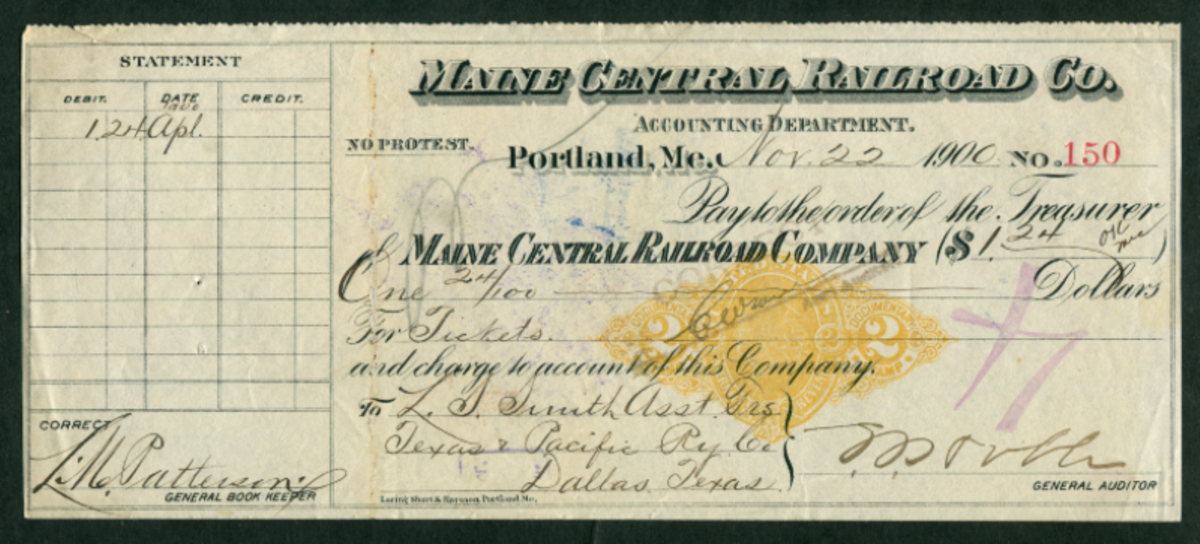 STATEMENT
DEBIT. DATE CREDIT.
1.24 Apl.
CORRECT
L.M. Patterson
GENERAL BOOK KEEPER
MAINE CENTRAL RAILROAD CO.
ACCOUNTING DEPARTMENT.
NO PROTEST.
Portland, Me., Nov. 22 1900 No. 150
Pay to the order of the Treasurer
of MAINE CENTRAL RAILROAD COMPANY ($ 1.24 )
One 24/100 Dollars
For Tickets.
2 2
and charge to account of this Company.
To L. S. Smith Asst. Trs
Texas & Pacific Ry. Co
Dallas Texas
GENERAL AUDITOR
Loring Short & Harmon, Portland Me.